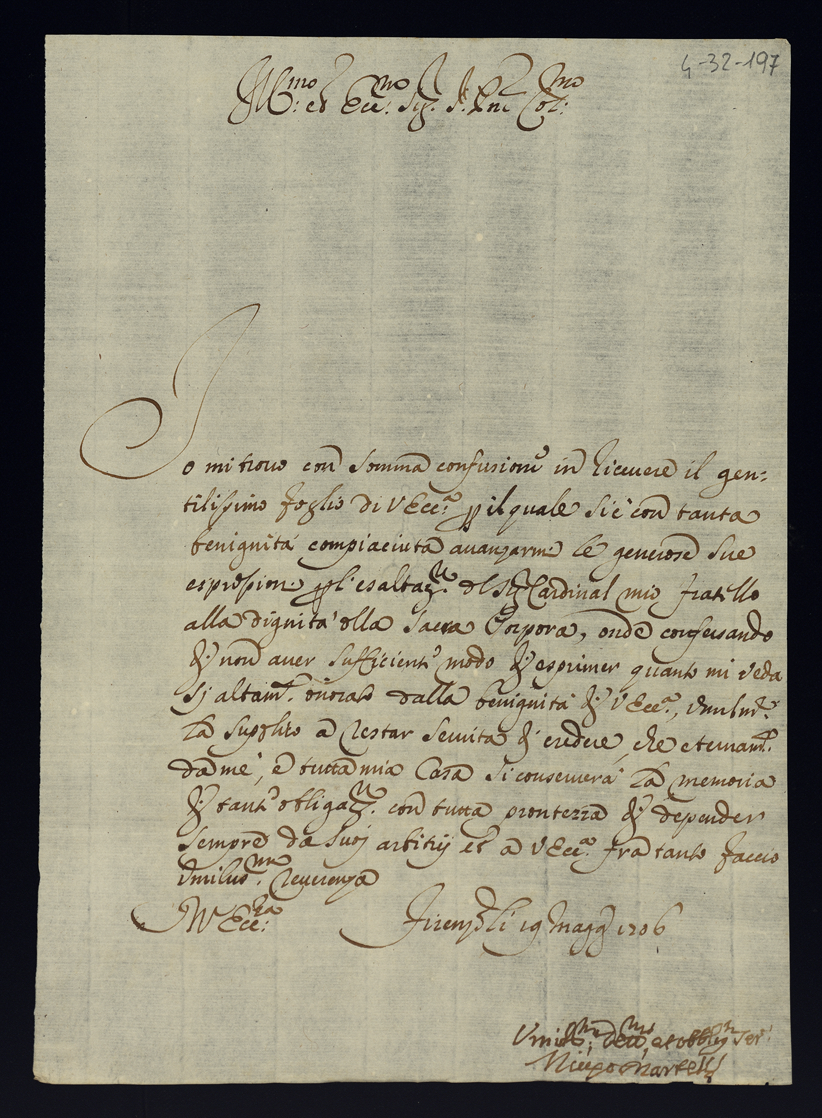 4-32-197
Ill.mo et Ecc.mo Sig.r Sr. Pne Col.mo
Io mi trovo con somma confusione in ricevere il gen=
tilissimo foglio di V Ecc.a per il quale si è con tanta
benignità compiaciuta avanzarmi le generose sue
espressioni per l'esaltaz.ne del Sig.r Cardinal mio fratello
alla dignità della Sacra Porpora, onde confessando
di non aver sufficiente modo di esprimer quanto mi veda
si altam.te onorato dalla benignità di V Ecc.a, umilm.te
La supplico a restar servita di credere, che eternam.te
da me, e tutta mia Casa si conserverà la memoria
di tante obligaz.ni con tutta prontezza di depender
sempre da suoi arbitrij et a V Ecc.a fra tanto faccio
umiliss.ma reverenza
Di V Ecc.za Firenze li 19 Magg.o 1706
Umil.mo Dev.mo et obblig.mo Ser.e
Martelli